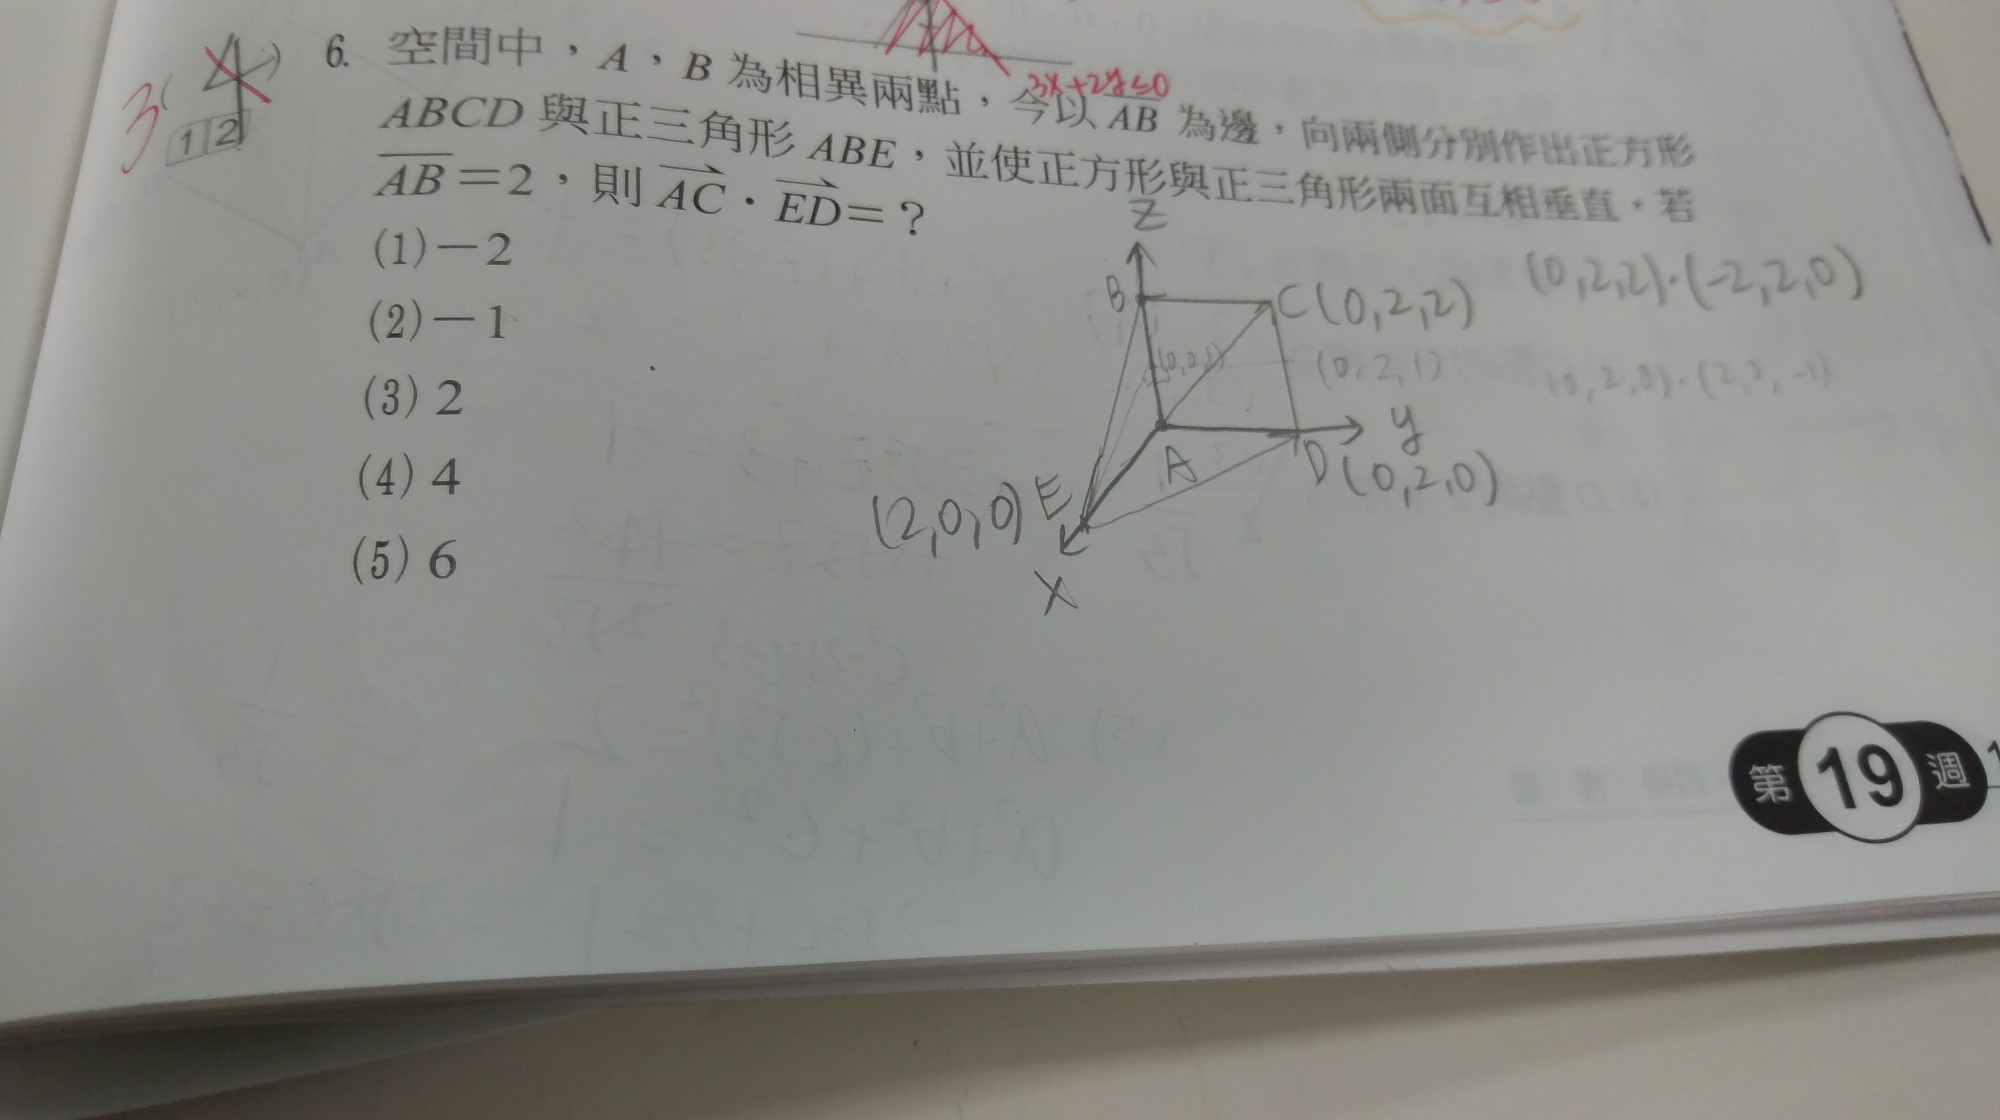 3x+2y≤0
3(4)
1 2
6. 空間中，A，B 為相異兩點，今以 AB 為邊，向兩側分別作出正方形
ABCD 與正三角形 ABE，並使正方形與正三角形兩面互相垂直。若
AB=2，則 AC・ED=？
(1)－2
(2)－1
(3) 2
(4) 4
(5) 6
Z
B
C(0,2,2)
(0,2,2)·(-2,2,0)
(0,0,1)
(0,2,1)
(0,2,0)·(2,2,-1)
y
A
D(0,2,0)
(2,0,0) E
X
第 19 週